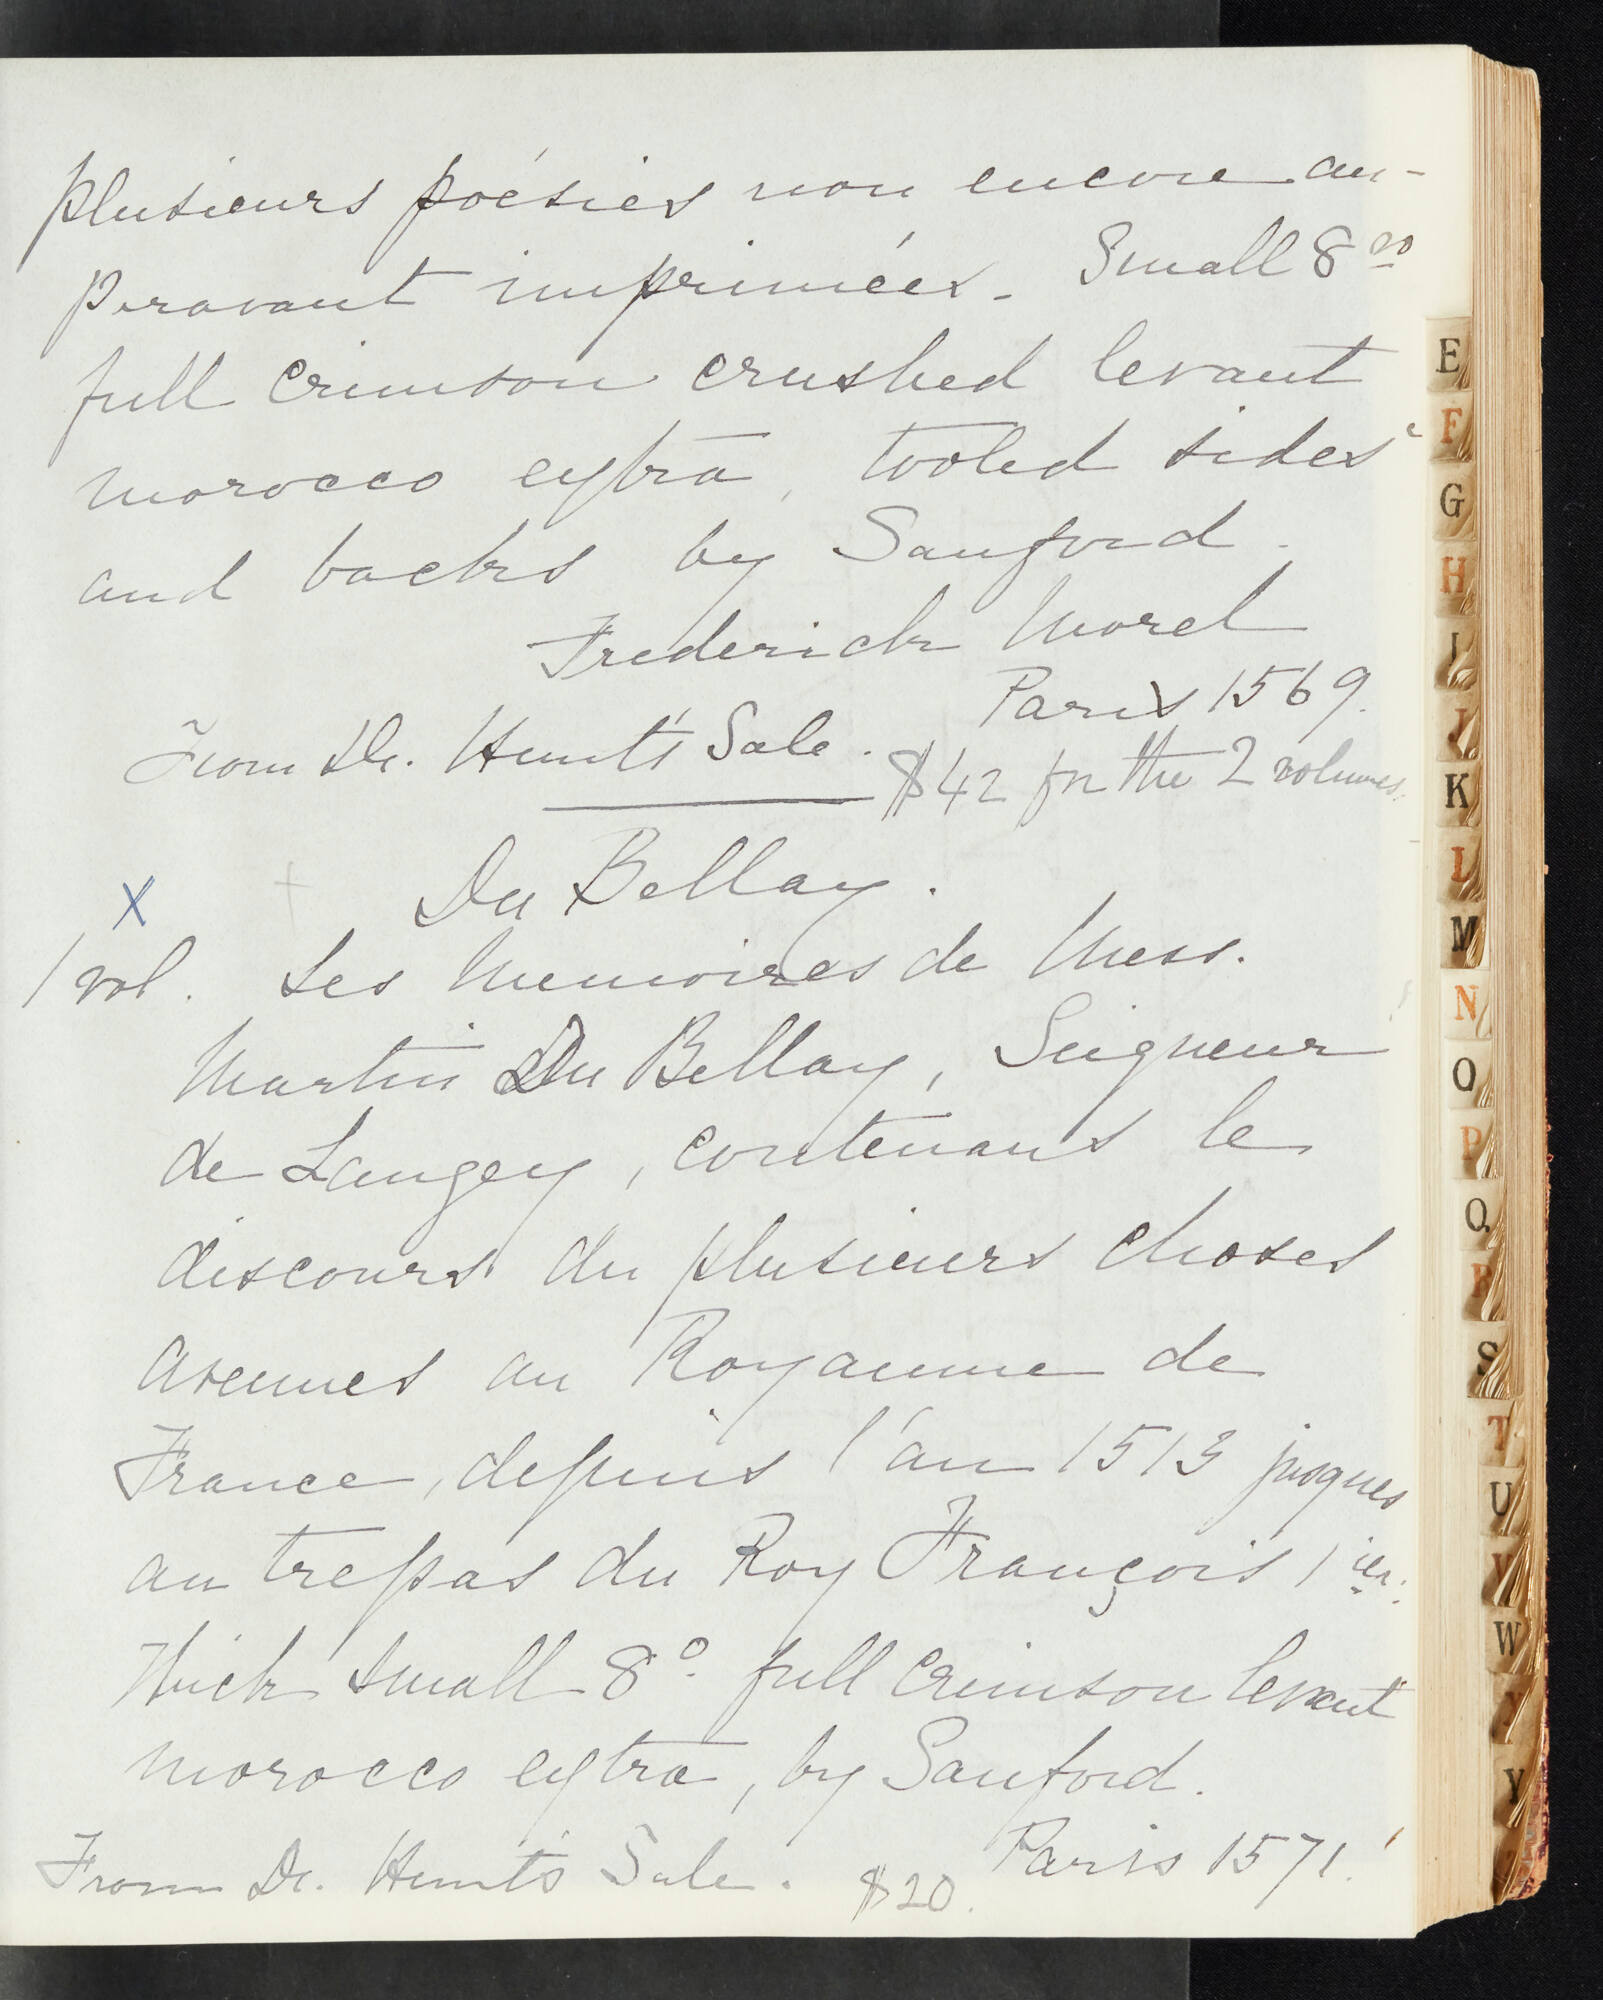 plusieurs poésies non encore au-
paravant imprimées. Small 8vo
full crimson crushed levant
morocco extra, tooled sides
and backs by Sanford.
Frederick Morel
Paris 1569.
From Dr. Hunt's Sale.
$42 for the 2 volumes.
X
Du Bellay.
1 vol. Les Memoires de Mess.
Martin Du Bellay, Seigneur
de Langey, contenans le
discours du plusieurs choses
avenues au Royaume de
France, depuis l'an 1513 jusques
au trepas du Roy François 1ier.
Thick small 8o. full crimson levant
morocco extra, by Sanford.
Paris 1571.
From Dr. Hunt's Sale. $20.
E
F
G
H
I
J
K
L
M
N
O
P
Q
R
S
T
U
V
W
X
Y